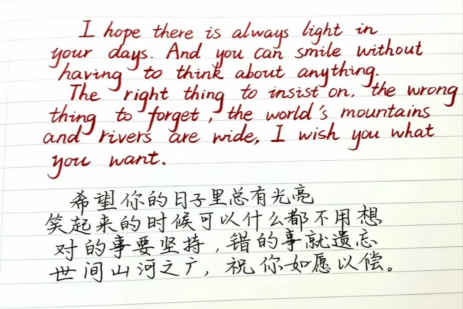 I hope there is always light in
your days. And you can smile without
having to think about anything.
The right thing to insist on, the wrong
thing to forget, the world's mountains
and rivers are wide, I wish you what
you want.
希望你的日子里总有光亮
笑起来的时候可以什么都不用想
对的事要坚持，错的事就遗忘
世间山河之广，祝你如愿以偿。